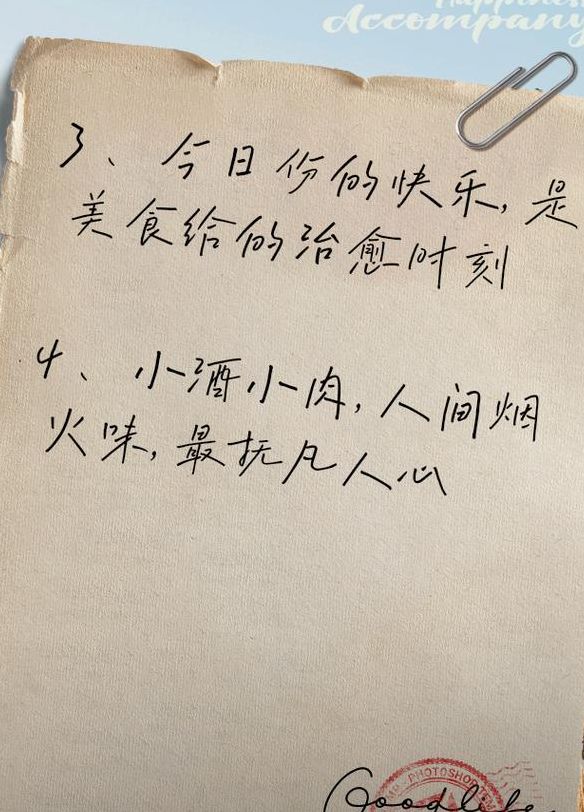 Happiness
Accompany
3、今日份的快乐,是
美食给的治愈时刻
4、小酒小肉,人间烟
火味,最抚凡人心
PHOTOSHOP